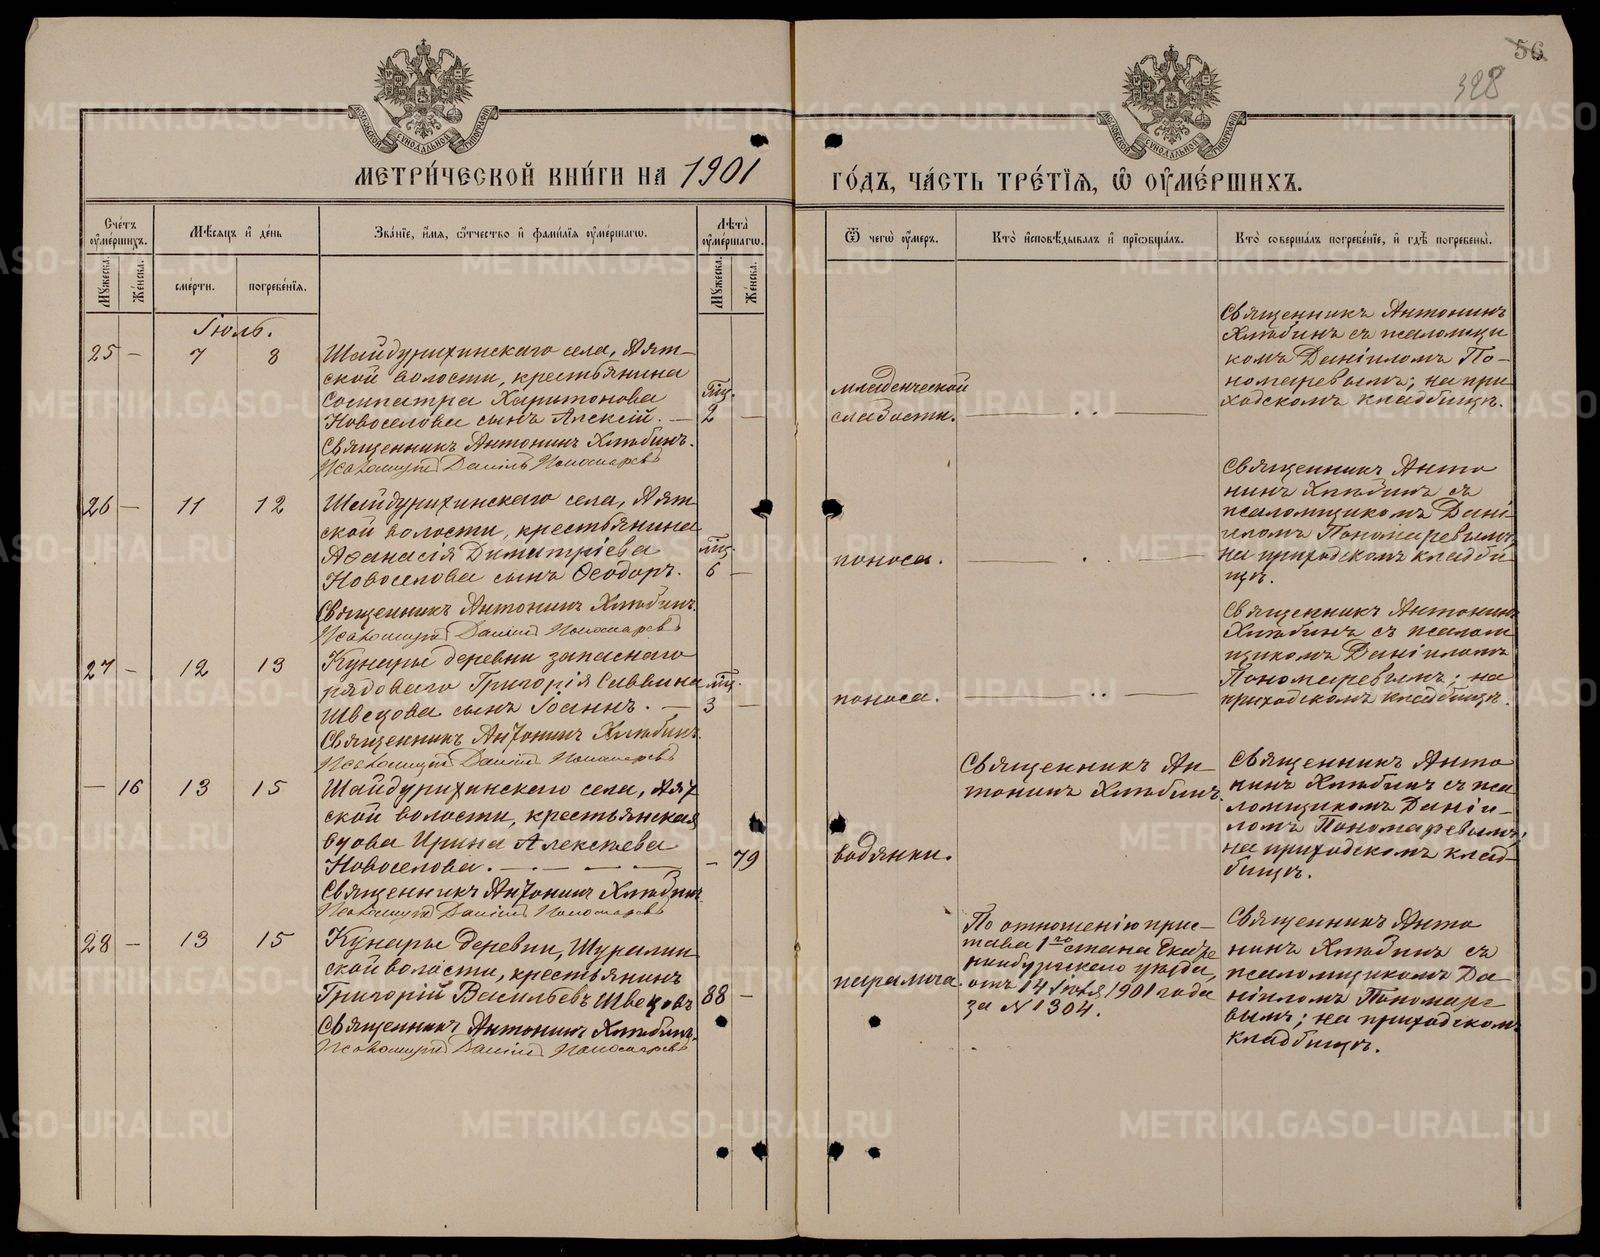 56
328
МЕТРИ́ЧЕСКОЙ КНИ́ГИ НА 1901
ГО́ДЪ, ЧА́СТЬ ТРЕ́ТІѦ, Ѽ ОУ҆МЕ́РШИХЪ.
Сче́тъ оу҆ме́ршихъ.
Мѣ́сѧцъ и҆ де́нь
Зва́нїе, и҆́мѧ, ѻ҆́тчество и҆ фамилїѧ оу҆ме́ршагѡ.
Лѣ́та оу҆ме́ршагѡ.
Ѿ чегѡ̀ оу҆́меръ.
Кто̀ и҆сповѣ́дывалъ и҆ прїѡбща́лъ.
Кто̀ соверша́лъ погребе́нїе, и҆ гдѣ̀ погребены̀.
Мꙋ́жеска.
Же́нска.
сме́рти.
погребе́нїѧ.
Мꙋ́жеска.
Же́нска.
Іюль.
25 — 7 8
Шайдурихинскаго села, Аят-
ской волости, крестьянина
Сосипатра Харитонова
Новоселова сынъ Алексій. —
мц.
2 —
Священникъ Антонинъ Хлыбинъ.
Псаломщикъ Даніилъ Пономаревъ
младенческой
слабости.
Священникъ Антонинъ
Хлыбинъ съ псаломщи
комъ Даніиломъ По-
номаревымъ; на при
ходскомъ кладбищѣ.
26 — 11 12
Шайдурихинскаго села, Аят
ской волости, крестьянина
Аѳанасія Димитріева
Новоселова сынъ Ѳеодоръ.
мц.
6 —
Священникъ Антонинъ Хлыбинъ.
Псаломщикъ Даніилъ Пономаревъ
поноса.
Священникъ Анто
нинъ Хлыбинъ съ
псаломщикомъ Дані
иломъ Пономаревымъ;
на приходскомъ кладби
щѣ.
27 — 12 13
Кунары деревни запаснаго
рядоваго Григорія Саввина
Швецова сынъ Іоаннъ. —
мц.
3 —
Священникъ Антонинъ Хлыбинъ.
Псаломщикъ Даніилъ Пономаревъ
поноса.
Священникъ Антонинъ
Хлыбинъ съ псалом
щикомъ Даніиломъ
Пономаревымъ; на
приходскомъ кладбищѣ.
— 16 13 15
Шайдурихинскаго села, Аят
ской волости, крестьянская
вдова Ирина Алексѣева
Новоселова.
— 79
Священникъ Антонинъ Хлыбинъ
Псаломщикъ Даніилъ Пономаревъ
водянки.
Священникъ Ан
тонинъ Хлыбинъ.
Священникъ Анто
нинъ Хлыбинъ съ пса
ломщикомъ Даніи-
ломъ Пономаревымъ;
на приходскомъ клад-
бищѣ.
28 — 13 15
Кунары деревни, Шуралин
ской волости, крестьянинъ
Григорій Васильевъ Швецовъ
88 —
Священникъ Антонинъ Хлыбинъ.
Псаломщикъ Даніилъ Пономаревъ
паралича.
По отношенію прис-
тава 1го стана Екате
ринбургскаго уѣзда,
отъ 14 Іюля 1901 года
за № 1304.
Священникъ Анто
нинъ Хлыбинъ съ
псаломщикомъ Да
ніиломъ Пономаре
вымъ; на приходскомъ
кладбищѣ.